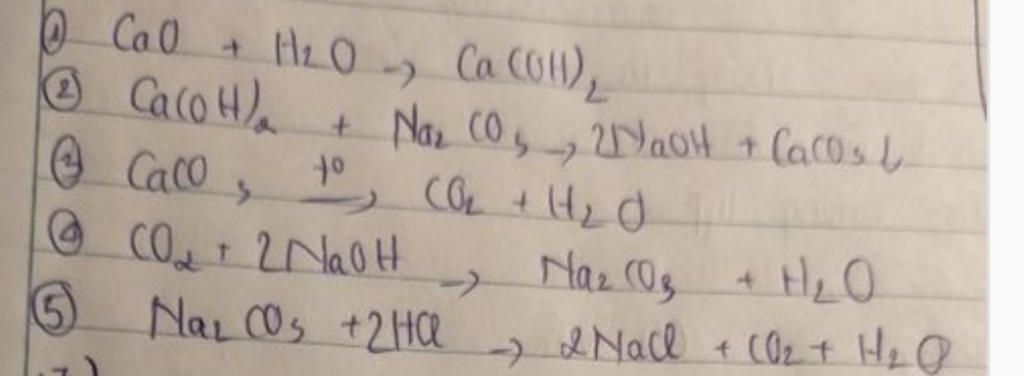 ① CaO + H₂O → Ca(OH)₂
② Ca(OH)₂ + Na₂CO₃ → 2NaOH + CaCO₃↓
③ CaCO₃ t° → CO₂ + H₂O
④ CO₂ + 2NaOH → Na₂CO₃ + H₂O
⑤ Na₂CO₃ + 2HCl → 2NaCl + CO₂ + H₂O